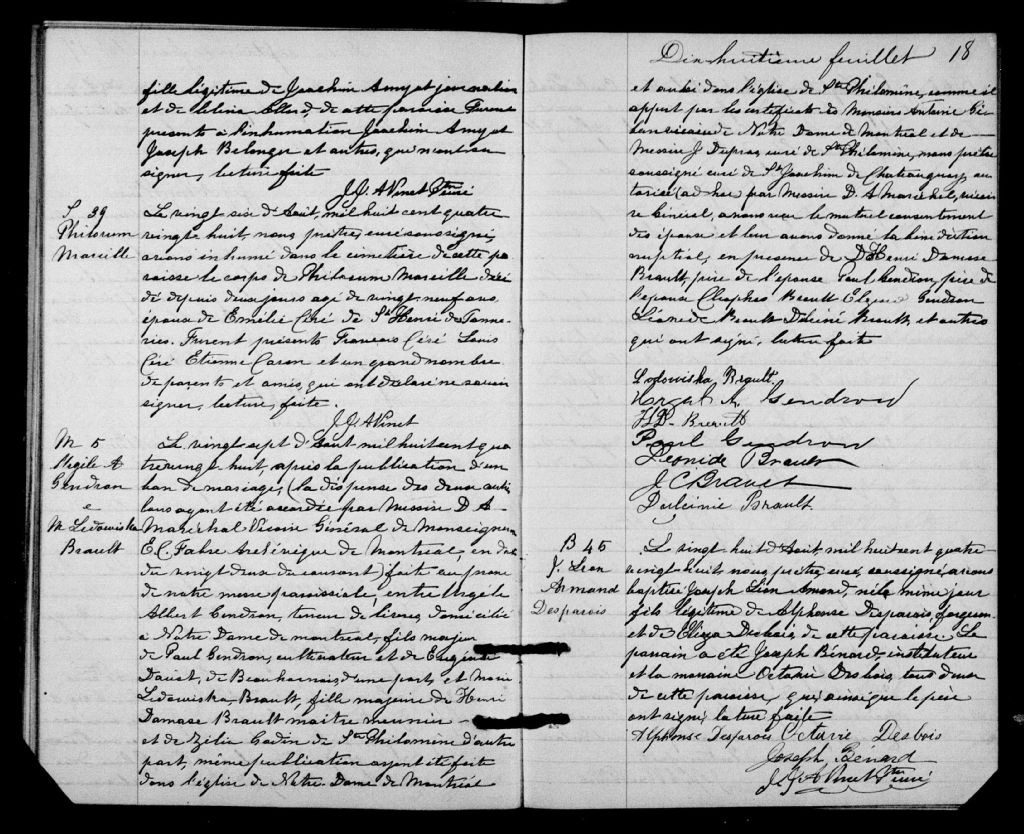 fille légitime de Joachim Amyot journalier
et de Célina Allard, de cette paroisse. Furent
présents à l'inhumation Joachim Amyot
Joseph Belanger et autres, qui n'ont su
signer, lecture faite
J. J. A Vinet Ptre curé
S 39
Philorum
Marcille
Le vingt six d'Aout, mil huit cent quatre
vingt huit, nous prêtre, curé soussigné,
avons inhumé dans le cimetière de cette pa
roisse le corps de Philorum Marcille décé
dé depuis deux jours agé de vingt neuf ans
époux de Emélie Céré de St Henri de Tanne-
ries. Furent présents François Céré Louis
Céré Etienne Caron et un grand nombre
de parents et amis, qui ont déclaré ne savoir
signer, lecture, faite.
J. J. A Vinet
M 5
Urgèle A
Gendron
e
M. Ledowiska
Brault
Le vingt sept d'Aout mil huit cent qua
tre vingt huit, après la publication d'un
ban de mariage, (la dispense des deux autres
bans ayant été accordée par Messire D. A
Maréchal Vicaire Général de Monseigneur
E. C. Fabre Archévêque de Montréal, en date
du vingt deux du courant) faite au prone
de notre messe paroissiale, entre Urgèle
Albert Gendron, teneur de livres, domicilié
à Notre Dame de montreal, fils majeur
de Paul Gendron, cultivateur et de Eugénie
Daoust, de Beauharnois, d'une part, et Marie
Ledowiska Brault, fille majeure de Henri
Damase Brault maitre meunier
et de Zélia Gadin de Ste Philomène d'autre
part, même publication ayant été faite
dans l'église de Notre Dame de Montréal
Dix huitième feuillet 18
et aussi dans l'église de Ste Philomène, comme il
appert par les certificats de Monsieur Antoine
vicaire de Notre Dame de Montreal et de
Messire J. Dupras curé de Ste Philomène, nous prêtre
soussigné curé de St Joachim de Chateauguay, au
torisé (ad hoc par Messire D. A Marechal, vicaire
Général, avons reçu le mutuel consentement
des époux et leur avons donné la bénédiction
nuptiale, en présence de D. Henri Damase
Brault, père de l'épouse Paul Gendron, père de
l'époux Cleophas Brault Gendron
Léonide Brault Délcimé Brault, et autres
qui ont signé, lecture faite
Lodowiska Brault.
A. Gendron
H. D. Brault
Paul Gendron
Léonide Brault
J. C. Brault
Delcimie Brault.
B 45
J. Leon
Armand
Desparois
Le vingt huit d'Aout, mil huit cent quatre
vingt huit nous prêtre, curé, soussigné, avons
baptisé Joseph Léon Amand, né le même jour
fils légitime de Alphonse Desparois forgeron
et de Eliza Desbois, de cette paroisse. Le
parrain a été Joseph Bénard, instituteur
et la marraine Octavie Desbois, tous deux
de cette paroisse, qui ainsi que le père
ont signé, lecture faite
Alphonse Desparois Octavie Desbois
Joseph Bénard
J. J. A Vinet Ptre curé